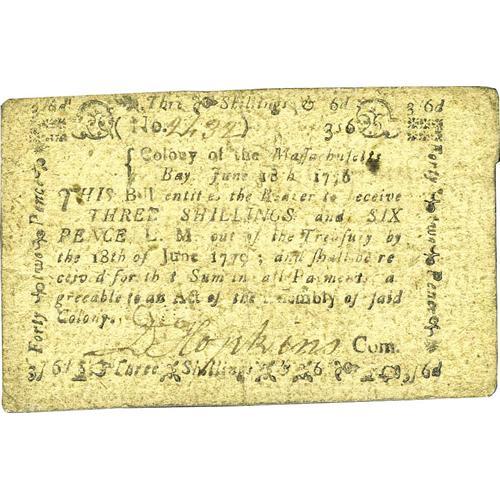 3/6d Three Shillings & 6d 3/6d
(No. 4434) 3s6
Colony of the Massachusetts
Bay, June 18th 1776
THIS Bill entitles the Bearer to receive
THREE SHILLINGS and SIX
PENCE L. M. out of the Treasury by
the 18th of June 1779; and shall be re
ceived for that Sum in all Payments, a
greeable to an Act of the Assembly of said
Colony.
D. Hopkins Com.
3/6d Three Shillings & 6 3/6d
Forty two Pence
Forty two Pence